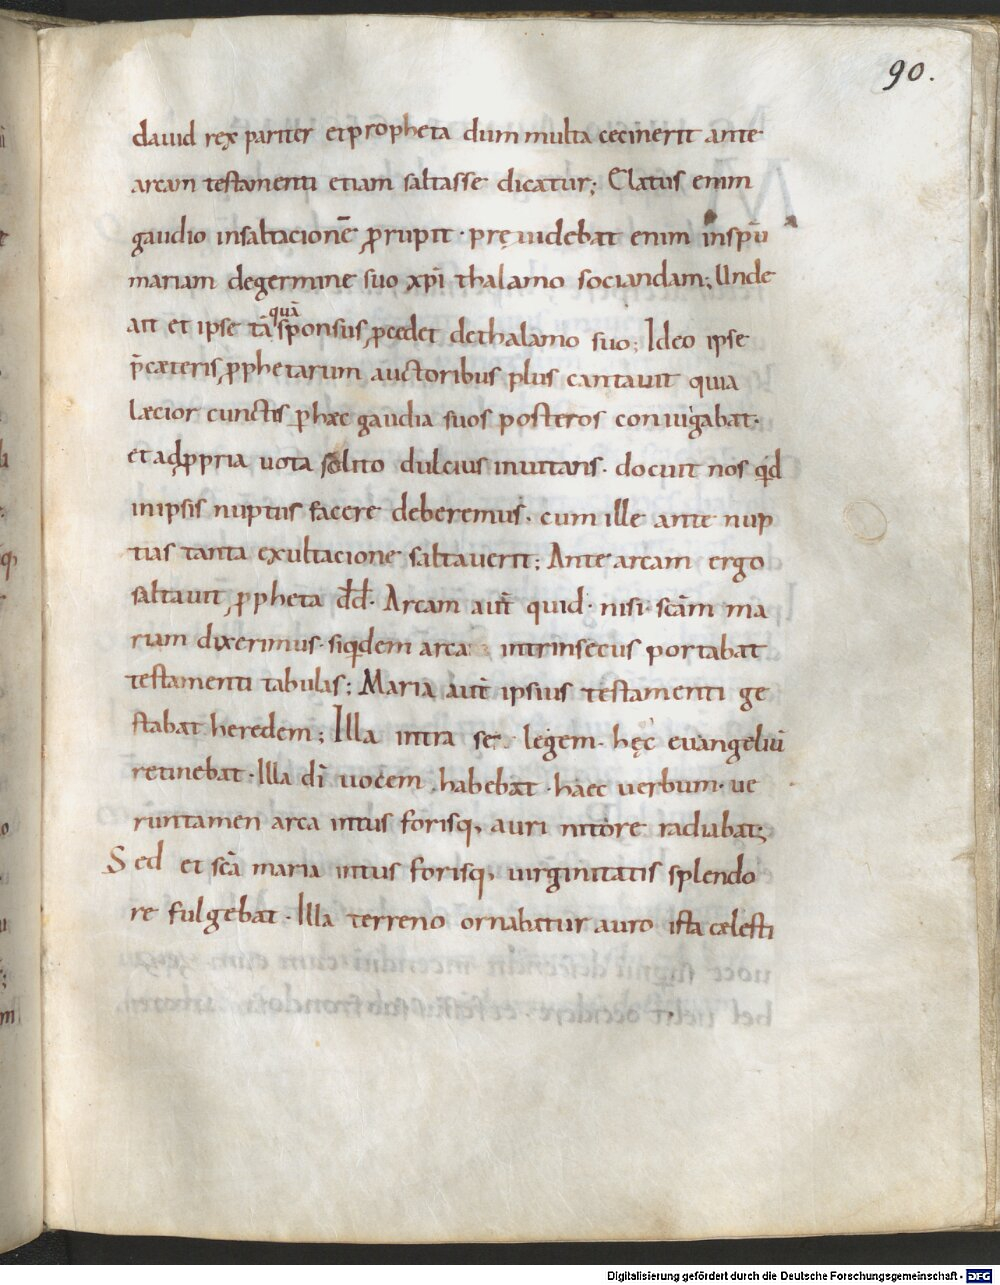 90.
dauid rex pariter et propheta dum multa cecinerit ante
arcam testamenti etiam saltasse dicatur; Elatus enim
gaudio insaltacionē ꝓrupit · pręuidebat enim inspū
mariam degermine suo xp̄i thalamo sociandam; Unde
ait et ipse tā quā sponsus ꝓcedet dethalamo suo; Ideo ipse
p̄ cæteris ꝓphetarum auctoribus plus cantauit quia
læcior cunctis ꝑ hæc gaudia suos posteros coniugabat·
et adꝓpria uota solito dulcius inuitans· docuit nos qd
inipsis nuptiis facere deberemus· cum ille ante nup
tias tanta exultacione saltauerit; Ante arcam ergo
saltauit ꝓpheta dd̄· Arcam aut̄ quid· nisi scām ma
riam dixerimus· siqdem arca intrinsecus portabat
testamenti tabulas; Maria aut̄ ipsius testamenti ge
stabat heredem; Illa intra se legem· hęc euangeliū
retinebat· Illa dī uocem habebat· haec uerbum· ue
runtamen arca intus forisq; auri nitore radiabat;
Sed et scā maria intus forisq; uirginitatis splendo
re fulgebat· Illa terreno ornabatur auro ista cælesti
Digitalisierung gefördert durch die Deutsche Forschungsgemeinschaft - DFG